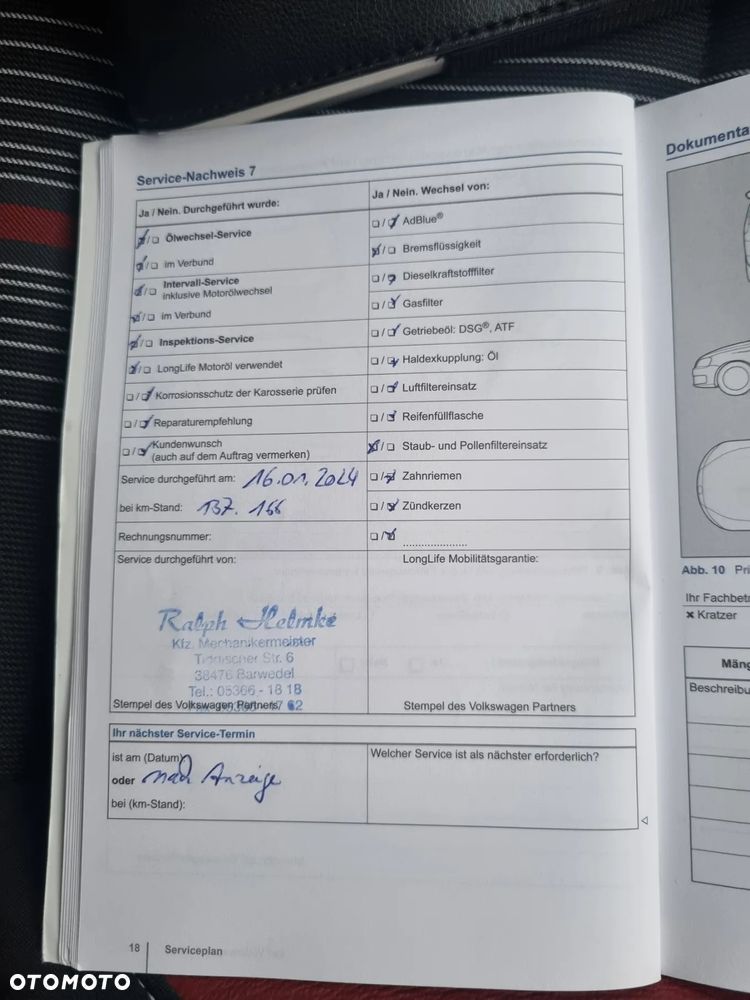 Service-Nachweis 7
Ja / Nein. Durchgeführt wurde:
Ölwechsel-Service
im Verbund
Intervall-Service
inklusive Motorölwechsel
im Verbund
Inspektions-Service
LongLife Motoröl verwendet
Korrosionsschutz der Karosserie prüfen
Reparaturempfehlung
Kundenwunsch
(auch auf dem Auftrag vermerken)
Service durchgeführt am: 16.01.2024
bei km-Stand: 137.166
Rechnungsnummer:
Service durchgeführt von:
Ralph Helmke
Kfz. Mechanikermeister
Str. 6
38476 Barwedel
Tel.: 05366 - 18 18
Stempel des Volkswagen Partners
Ja / Nein. Wechsel von:
AdBlue®
Bremsflüssigkeit
Dieselkraftstofffilter
Gasfilter
Getriebeöl: DSG®, ATF
Haldexkupplung: Öl
Luftfiltereinsatz
Reifenfüllflasche
Staub- und Pollenfiltereinsatz
Zahnriemen
Zündkerzen
LongLife Mobilitätsgarantie:
Stempel des Volkswagen Partners
Ihr nächster Service-Termin
ist am (Datum)
oder nach Anzeige
bei (km-Stand):
Welcher Service ist als nächster erforderlich?
18 Serviceplan
Dokumenta
Abb. 10 Pri
Ihr Fachbet
× Kratzer
Mäng
Beschreibu
OTOMOTO